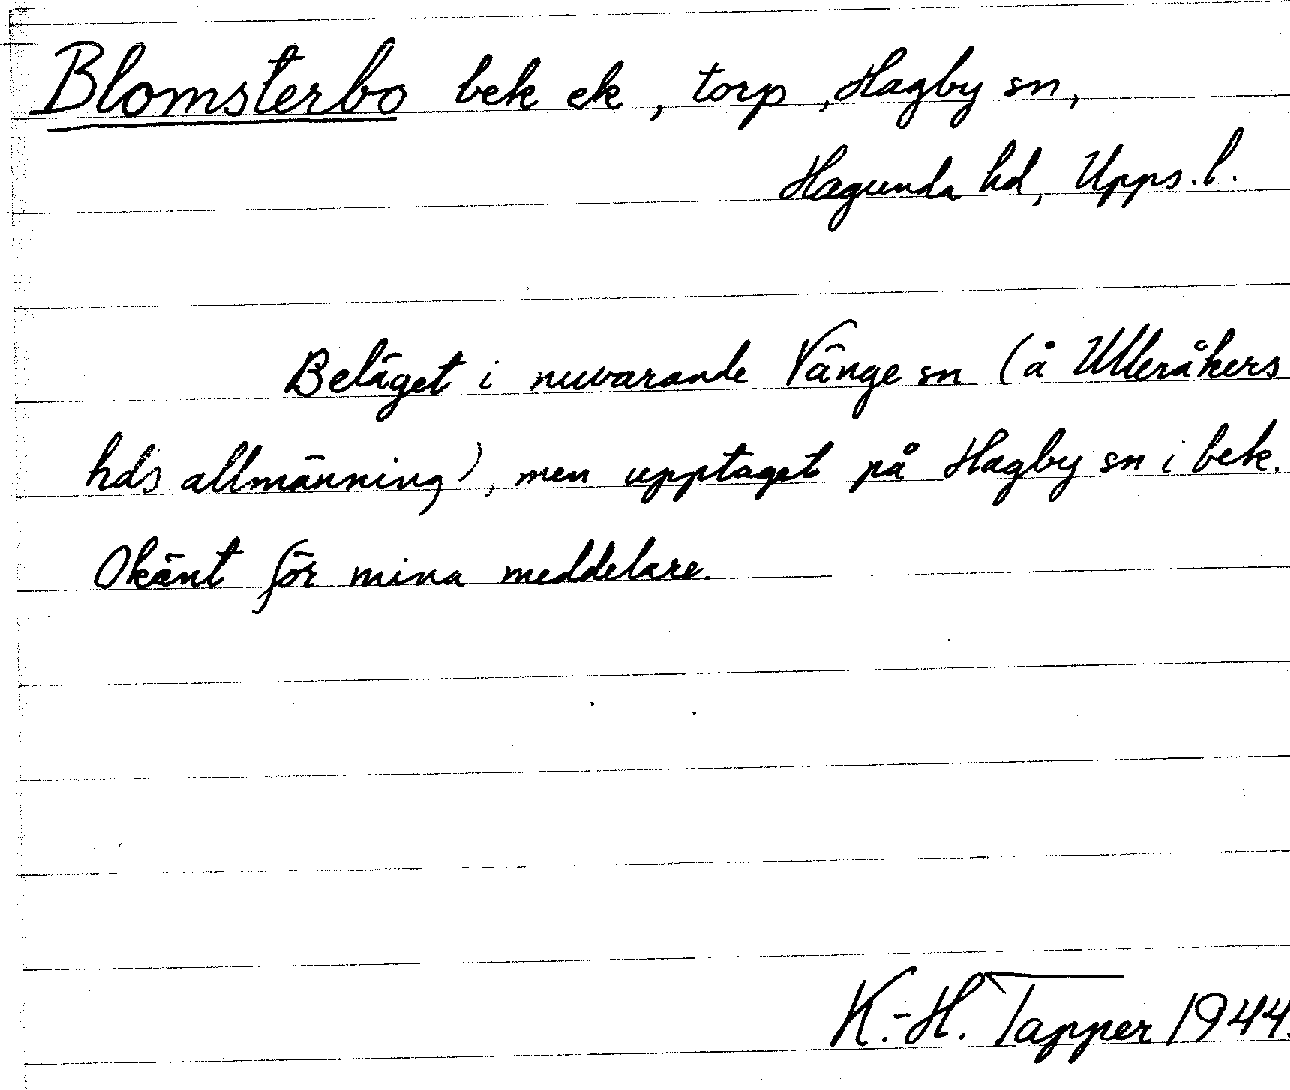 Blomsterbo bek ek, torp, Hagby sn,
Hagunda hd, Upps. l.
Beläget i nuvarande Vänge sn (å Ulleråkers
hds allmänning), men upptaget på Hagby sn i bek.
Okänt för mina meddelare.
K.-H. Tapper 1944.